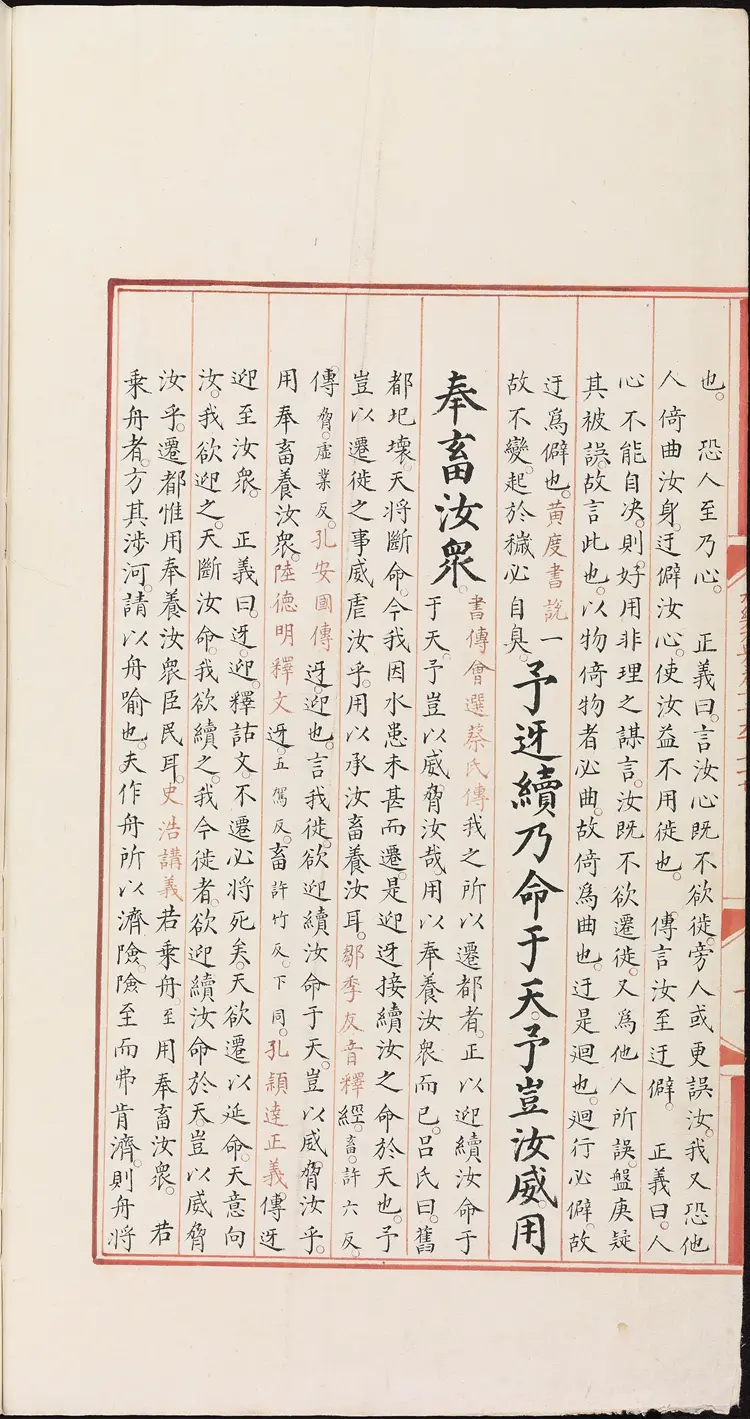 也。　恐人至乃心。　正義曰。言汝心既不欲徙。旁人或更誤汝。我又恐他
人倚曲汝身。迂僻汝心。使汝益不用徙也。　傳言汝至迂僻。　正義曰。人
心不能自决。則好用非理之謀。言汝既不欲遷徙。又爲他人所誤。盤庚疑
其被誤。故言此也。以物倚物者必曲。故倚爲曲也。迂是迴也。迴行必僻。故
迂爲僻也。黃度書說一
故不變。起於穢必自臭。予迓續乃命于天。予豈汝威。用
奉畜汝衆。書傳會選蔡氏傳我之所以遷都者。正以迎續汝命于
于天。予豈以威脅汝哉。用以奉養汝衆而已。呂氏曰。舊
都圯壞。天將斷命。今我因水患未甚而遷。是迎迓接續汝之命於天也。予
豈以遷徙之事威虐汝乎。用以承汝畜養汝耳。鄒季友音釋經。畜。許六反。
傳脅。虛業反。孔安國傳迓。迎也。言我徙。欲迎續汝命于天。豈以威脅汝乎。
用奉畜養汝衆。陸德明釋文迓。五駕反。畜許竹反。下同。孔頴達正義。傳迓
迎至汝衆。　正義曰。迓。迎。釋詁文。不遷必將死矣。天欲遷以延命。天意向
汝。我欲迎之。天斷汝命。我欲續之。我今徙者。欲迎續汝命於天。豈以威脅
汝乎。遷都惟用奉養汝衆臣民耳。史浩講義若乘舟至用奉畜汝衆。　若
乘舟者。方其涉河。請以舟喻也。夫作舟所以濟險。險至而弗肯濟。則舟將